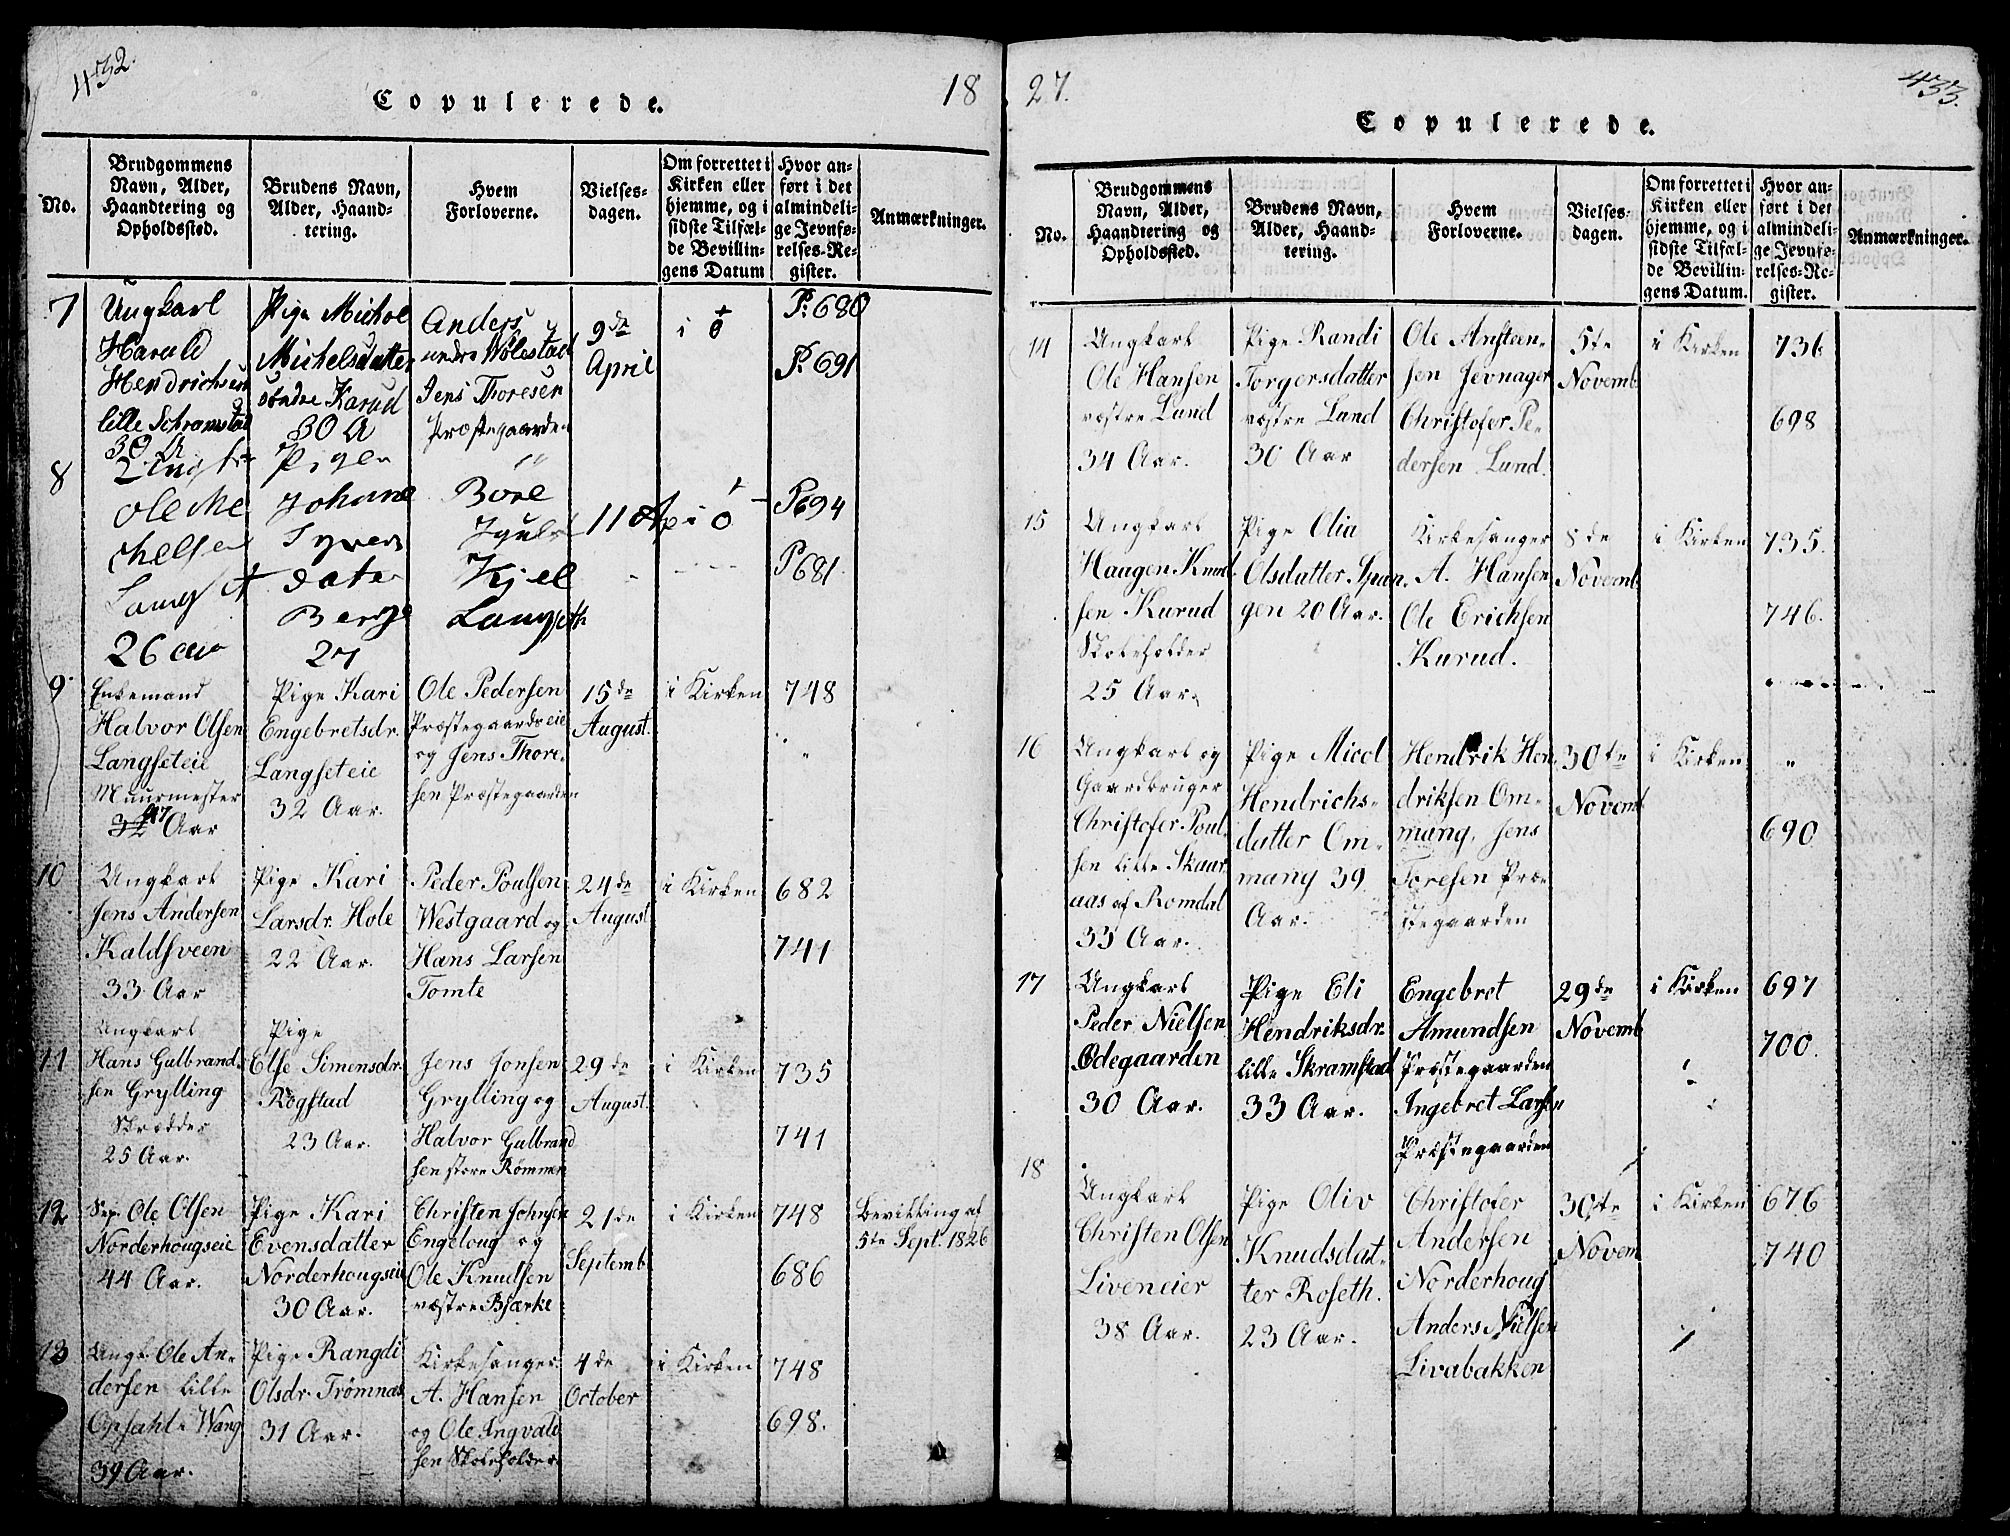 432.
Copulerede.
18
No.
Brudgommens Navn, Alder, Haandtering og Opholdssted.
Brudens Navn, Alder, Haandtering.
Hvem Forloverne.
Vielsesdagen.
Om forrettet i Kirken eller hjemme, og i sidste Tilfælde Bevillingens Datum
Hvor anført i det almindelige Jevnførelses-Register.
Anmærkninger.
7
Ungkarl
Harald
Hendrichsen
lille Schramstad
30 A
Pige Michol
Michelsdatter
søndre Karud
30 A
Anders
undre Wolestad
Jens Thoresen
Præstegaarden
9de
April
i
P. 680
P. 691
8
Ole Mi
chelsen
Langset
26 aar
Pigen
Johane
Syvers
dater
Berge
27
Boel
Kjel
Langseth
11 Ap
i
P 694
P 681.
9
Enkemand
Halvor Olsen
Langseteie
Muurmester
47 Aar
Pige Kari
Engebretsdr.
Langseteie
32 Aar.
Ole Pedersen
Præstegaardseie
og Jens Thore-
sen Præstegaarden
15de
August.
i Kirken
748
"
10
Ungkarl
Jens Andersen
Kaldsveen
33 Aar
Pige Kari
Larsdr. Hole
22 Aar.
Peder Poulsen
Westgaard og
Hans Larsen
Tomte
24de
August
i Kirken
682
741
11
Ungkarl
Hans Gulbrand-
sen Grylling
Skrædder
25 Aar.
Pige
Else Simensdr.
Rogstad
23 Aar.
Jens Jonsen
Grylling og
Halvor Gulbrand
sen store Rømmen
29de
August.
i Kirken
735
741
12
Sep. Ole Olsen
Norderhougseie
44 Aar.
Pige Kari
Evensdatter
Norderhougseie
30 Aar.
Christen Johnsen
Engeloug og
Ole Knudsen
væstre Bjærke
21de
Septemb
i Kirken
748
686
Bevilling af
5te Sept. 1826
13
Ungk. Ole An-
dersen lille
Opsahl i Wang
39 Aar.
Pige Rangdi
Olsdr. Trømnæs
31 Aar.
Kirkesanger
A. Hansen
og Ole Ingvald
sen Skoleholder
4de
October
i Kirken
748
698.
27.
433.
Copulerede.
No.
Brudgommens Navn, Alder, Haandtering og Opholdssted.
Brudens Navn, Alder, Haandtering.
Hvem Forloverne.
Vielsesdagen.
Om forrettet i Kirken eller hjemme, og i sidste Tilfælde Bevillingens Datum.
Hvor anført i det almindelige Jevnførelses-Register.
Anmærkninger.
14
Ungkarl
Ole Hansen
væstre Lund
34 Aar.
Pige Randi
Torgersdatter
væstre Lund
30 Aar
Ole Ansteen-
sen Jevnager
Christofer Pe-
dersen Lund.
5te
Novemb
i Kirken
736
698
15
Ungkarl
Haagen Knud-
sen Kurud
Skoleholder
25 Aar.
Pige Olia
Olsdatter Span-
gen 20 Aar.
Kirkesanger
A. Hansen
Ole Ericksen
Kurud.
8de
Novemb
i Kirken
735.
746.
16
Ungkarl og
Gaardbruger
Christofer Poul-
sen lille Skaar
aas af Romdal
33 Aar.
Pige Micol
Hendrichs-
datter Om-
mang 39
Aar.
Hendrik Hen-
driksen Om-
mang, Jens
Toresen Præ-
stegaarden
30te
Novemb
i Kirken
"
690
17
Ungkarl
Peder Nielsen
Ødegaarden
30 Aar.
Pige Eli
Hendriksdr.
lille Skramstad
33 Aar.
Engebret
Amundsen
Præstegaarden
Ingebret Larsen
Præstegaarden
29de
Novemb
i Kirken
697
700.
18
Ungkarl
Christen Olsen
Liveneier
38 Aar.
Pige Oliv
Knudsdat-
ter Roseth.
23 Aar.
Christofer
Andersen
Norderhoug
Anders Nielsen
Livabakken
30te
Novem
i Kirken
676
740